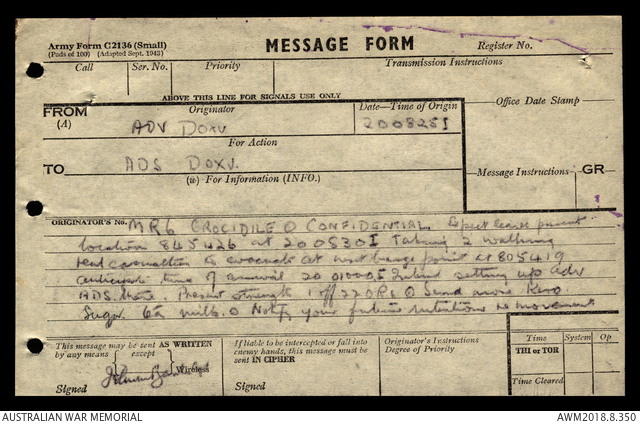 Army Form C2136 (Small)
(Pads of 100) (Adapted Sept. 1943)
MESSAGE FORM
Register No.
Call
Ser. No.
Priority
Transmission Instructions
ABOVE THIS LINE FOR SIGNALS USE ONLY
FROM
(A)
Originator
ADV DOXV
Date—Time of Origin
200825I
Office Date Stamp
For Action
TO
ADS DOXV.
(w) For Information (INFO.)
Message Instructions
GR
ORIGINATOR'S No.
MR6 CROCIDILE O CONFIDENTIAL. Expect leave present
location 845426 at 200830I Taking 2 walking
casualties to evacuate at exchange point at 805419
anticipate time of arrival 20 Intend setting up Adv
ADS there. Present strength 1 off 22 ORs O Send more Kero
Sugar milk. O Notify your future intentions re movement
This message may be sent AS WRITTEN
by any means except
Wireless
Signed
If liable to be intercepted or fall into
enemy hands, this message must be
sent IN CIPHER
Signed
Originator's Instructions
Degree of Priority
Time
System
Op
THI or TOR
Time Cleared
AUSTRALIAN WAR MEMORIAL
AWM2018.8.350